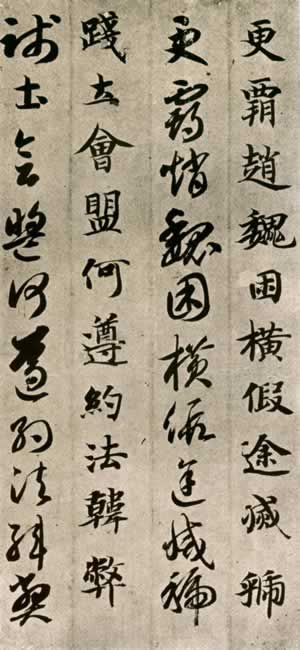 更霸趙魏困横假途滅虢
更霸趙魏困横假途滅虢
踐土會盟何遵約法韓弊
踐土會盟何遵約法韓弊